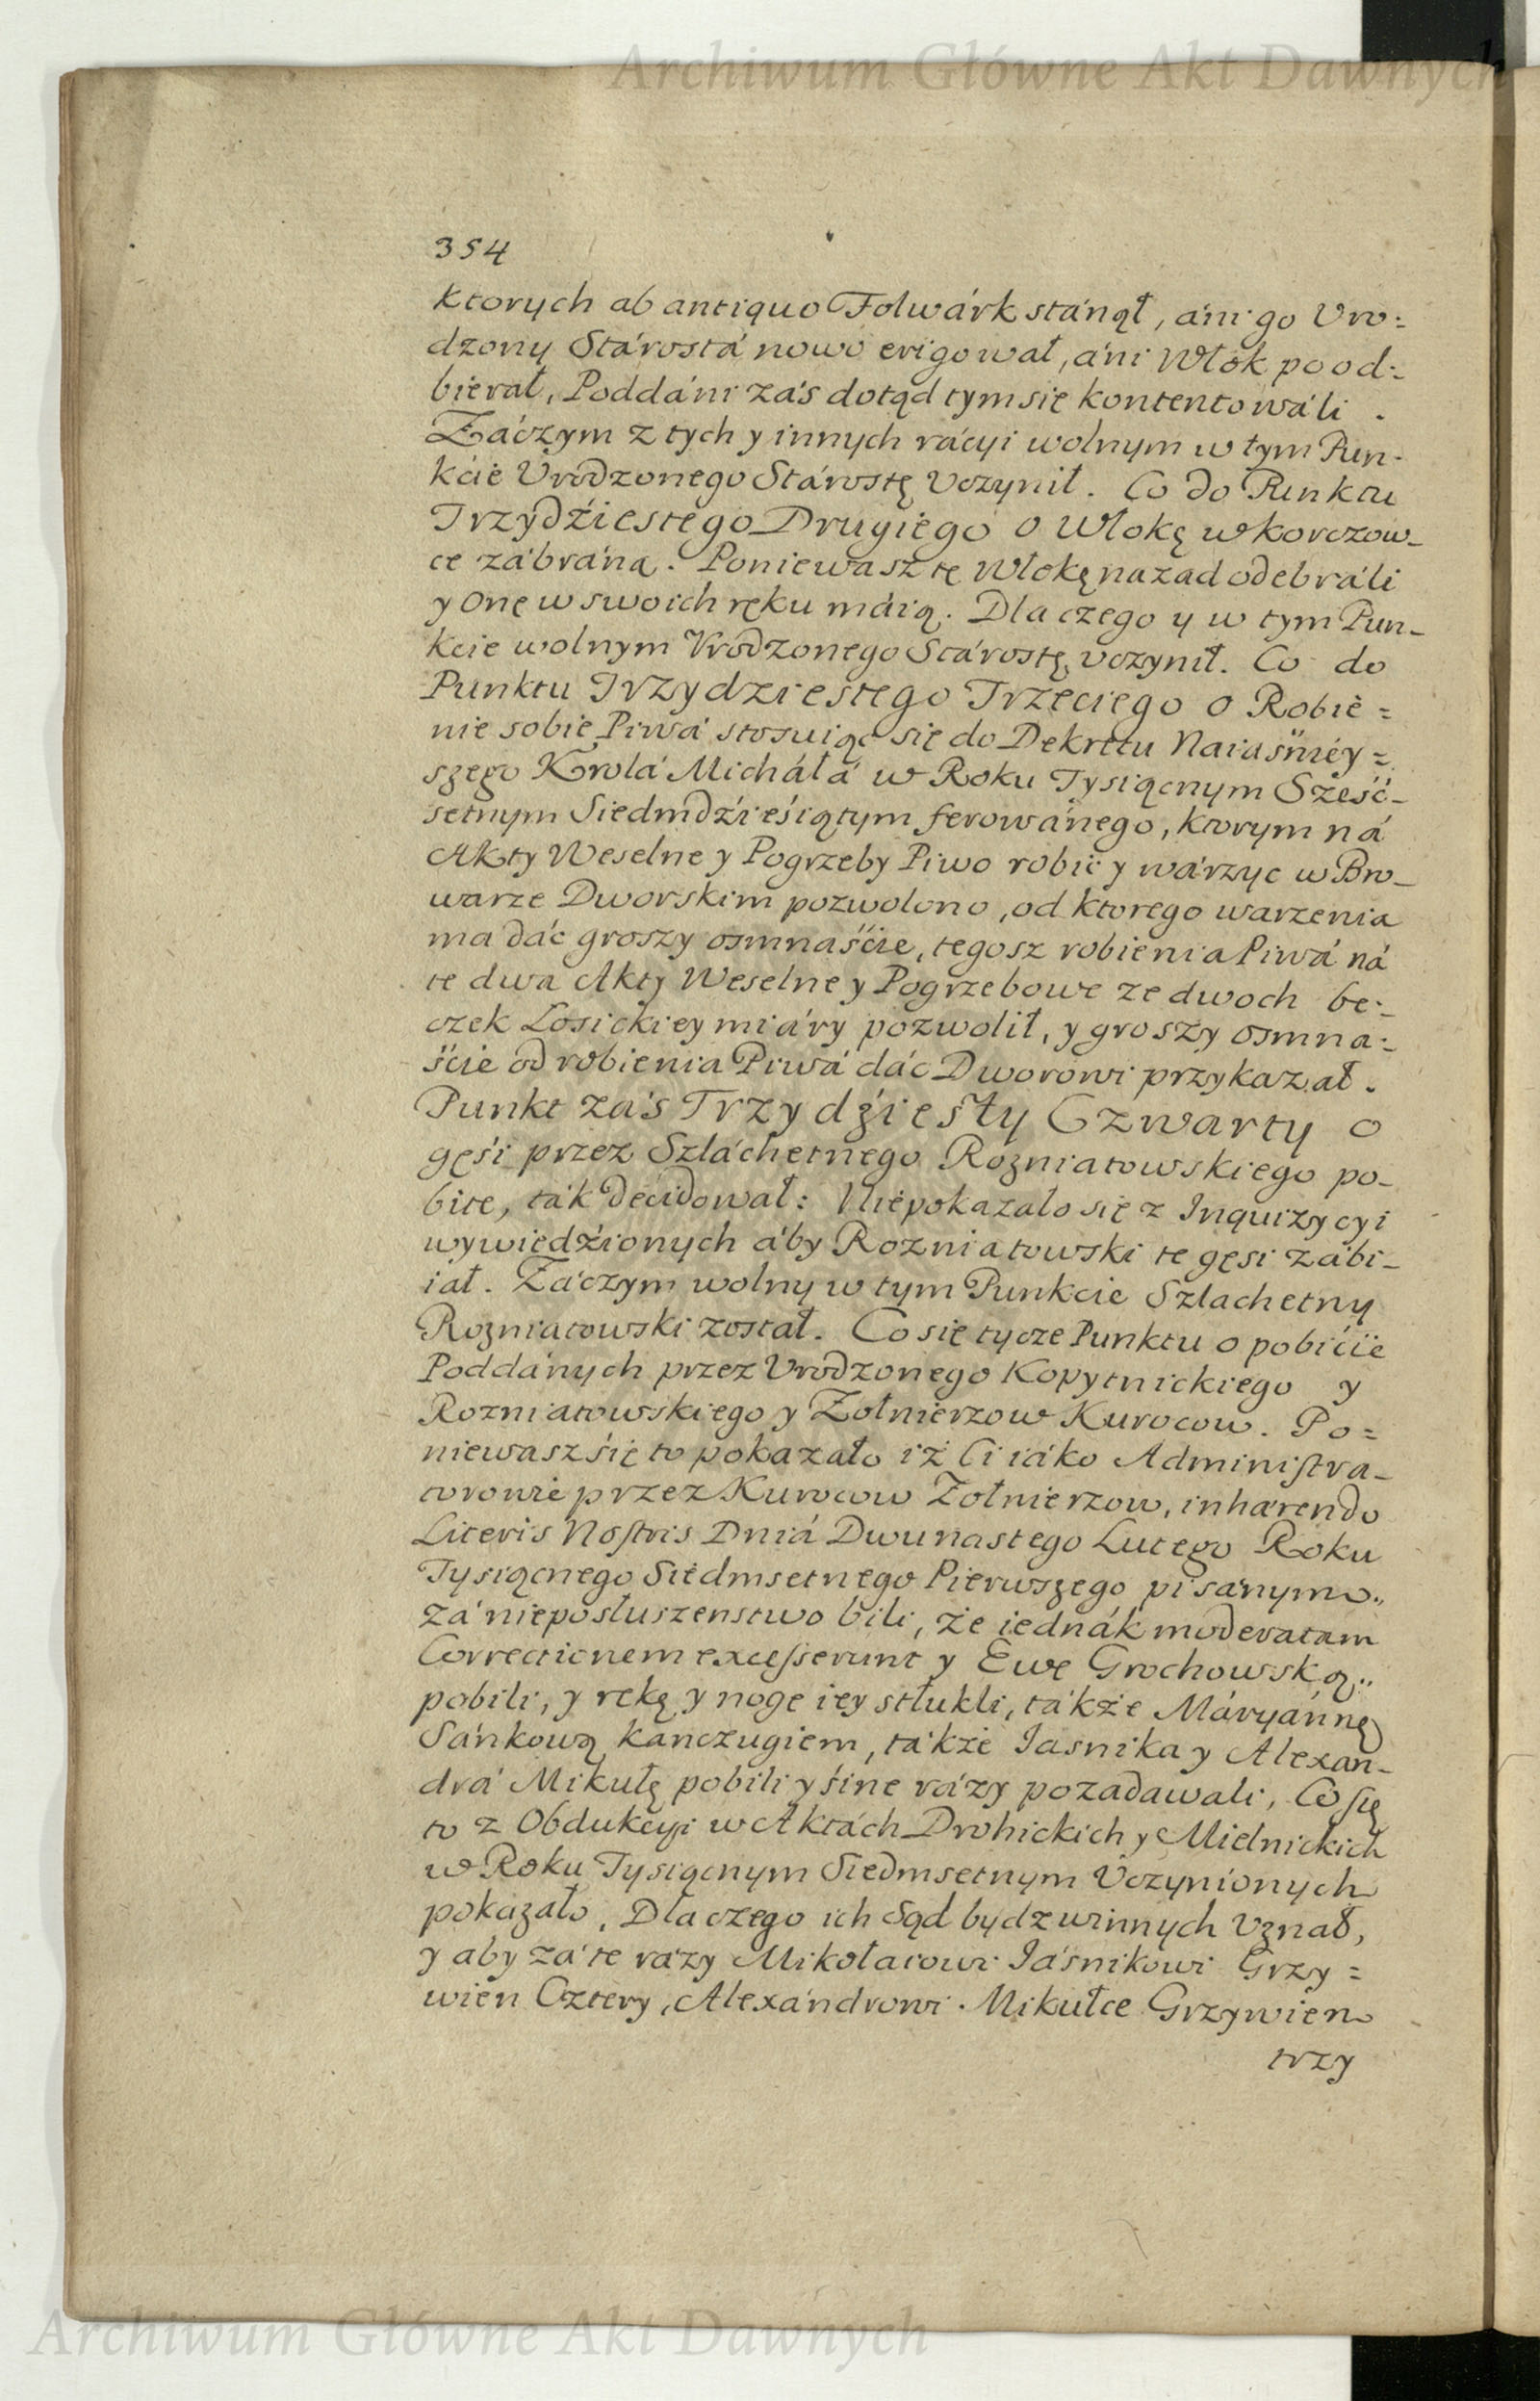 Archiwum Główne Akt Dawnych
354
ktorych ab antiquo Folwárk stánął, áni go Vro=
dzony Stárostá nowo erigował, áni Włok pood=
bierał, Poddáni zás dotąd tym się kontentowáli.
Záczym z tych y innych rácyi wolnym w tym Pun-
kcie Vrodzonego Stárostę Vczynił. Co do Punktu
Trzydźiestego Drugiego o Włokę w korczow-
ce zábráną. Poniewasz tę Włokę nazad odebráli
y onę w swoich ręku máią. Dla czego y w tym Pun-
kcie wolnym Vrodzonego Stárostę vczynił. Co do
Punktu Trzydziestego Trzeciego o Robie=
nie sobie Piwá stosuiąc się do Dekretu Naiaśniéy=
szego Krolá Micháłá w Roku Tysiącnym Sześć-
setnym Siedmdźieśiątym ferowánego, ktorym ná
Akty Weselne y Pogrzeby Piwo robić y wárzyc w Bro-
warze Dworskim pozwolono, od ktorego warzenia
ma dáć groszy osmnaście, tegosz robienia Piwá ná
te dwa Akty Weselne y Pogrzebowe ze dwoch be=
czek Łosickiey miáry pozwolił, y groszy osmna=
ście od robienia Piwá dáć Dworowi przykazał.
Punkt zás Trzydźiesty Czwarty o
gęśi przez Szláchetnego Rozniatowskiego po-
bite, ták decidował: Niepokazało się z Inquizycyi
wywiedźionych áby Rozniatowski te gęsi zábi-
iał. Záczym wolny w tym Punkcie Szlachetny
Rozniatowski został. Co się tycze Punktu o pobićie
Poddánych przez Vrodzonego Kopytnickiego y
Rozniatowskiego y Zołnierzow Kurocow. Po=
niewasz się to pokazało iż Ci iáko Administra-
torowie przez Kurocow Zołnierzow, inhærendo
Literis Nostris Dniá Dwunastego Lutego Roku
Tysiącnego Siedmsetnego Pierwszego pisánym
zá nieposłuszenstwo bili, że iednák moderatam
Correctionem excesserunt y Ewę Grochowską
pobili, y rękę y nogę iey stłukli, tákże Máryánnę
Sánkową kanczugiem, tákże Iasnika y Alexan-
drá Mikułę pobili y śine rázy pozadawali, Co się
to z Obdukcyi w Aktách Drohickich y Mielnickich
w Roku Tysiącnym Siedmsetnym Vczynionych
pokazało, Dla czego ich Sąd bydz winnych Vznał,
y aby zá te rázy Mikołaiowi Iáśnikowi Grzy=
wien Cztery, Alexándrowi Mikułce Grzywien
trzy
Archiwum Główne Akt Dawnych